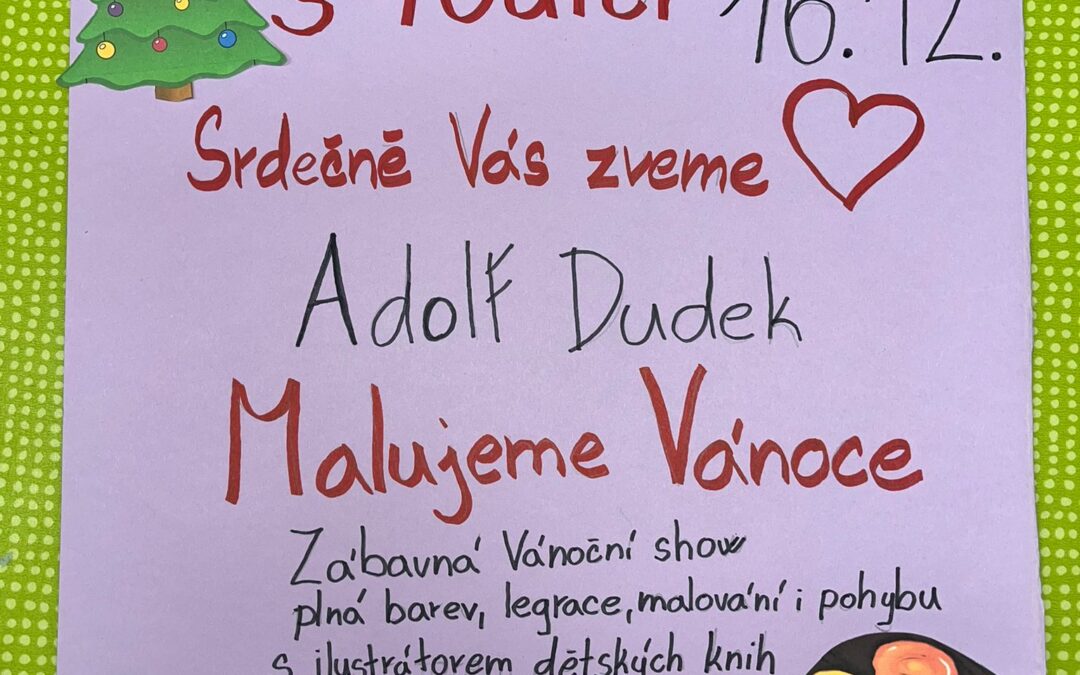 s rodiči 16.12.
Srdečně Vás zveme
Adolf Dudek
Malujeme Vánoce
Zábavná Vánoční show
plná barev, legrace, malování i pohybu
s ilustrátorem dětských knih